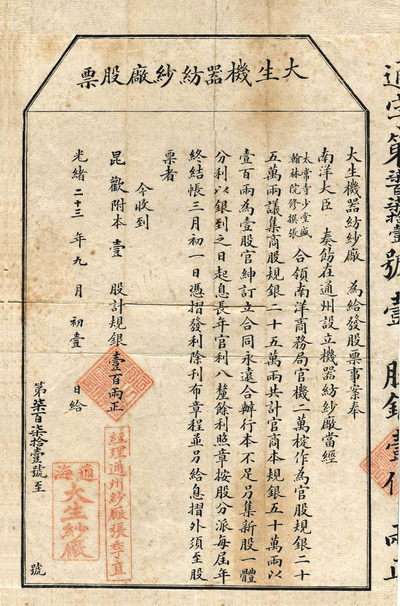 大生機器紡紗廠股票
大生機器紡紗廠 為給發股票事案奉
南洋大臣 奏飭在通州設立機器紡紗廠當經
太常寺少堂盛
翰林院修撰張 合領南洋商務局官機二萬梃作為官股規銀二十
五萬兩議集商股規銀二十五萬兩共計官商本規銀五十萬兩以
壹百兩為壹股官紳訂立合同永遠合辦行本不足另集新股一體
分利以銀到之日起息長年官利八釐餘利照章按股分派每屆年
終結帳三月初一日憑摺發利除刊布章程並另給息摺外須至股
票者
今收到
昆歡附本 壹 股計規銀 壹百兩正
光緒 二十三 年 九 月 初壹 日給
第 柒百柒拾壹 號至 號
經理通州紗廠張季直
通海
大生紗廠
通字第 號 壹 股銀壹佰 兩正